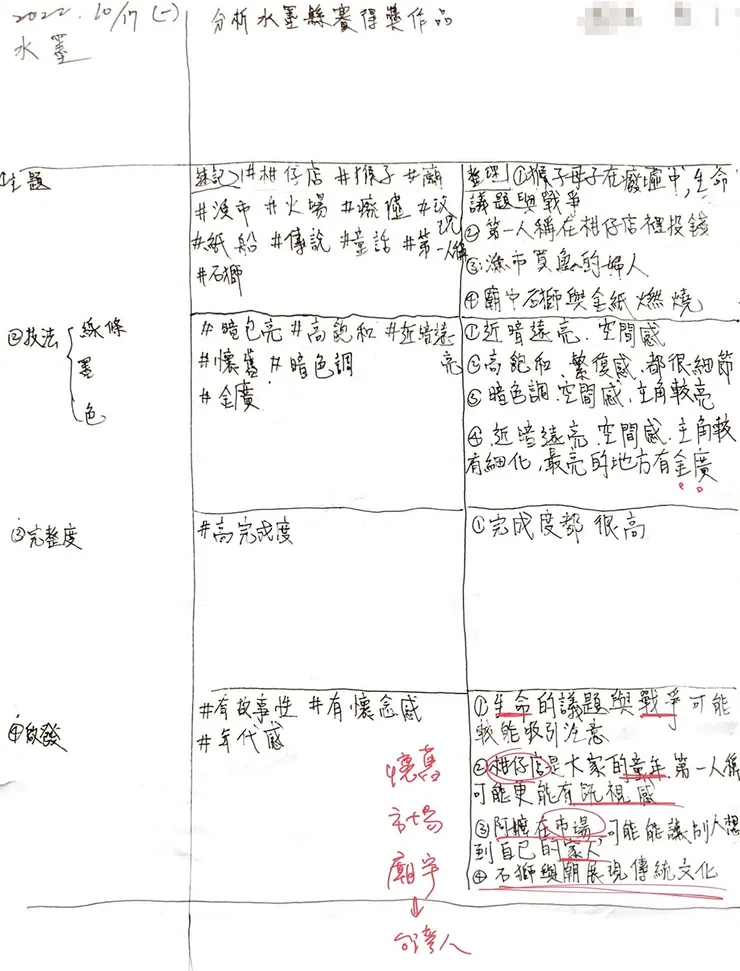 2022.10/17 (一)
分析水墨縣賽得獎作品
水墨
①主題
速記 #柑仔店 #猴子 #廟
#漁市 #火場 #廢墟 #玟
#紙船 #傳說 #童話 #第一人稱
#石獅
整理 ①猴子母子在廢墟中,生命
議題與戰爭
②第一人稱在柑仔店裡投錢
③漁市買魚的婦人
④廟中石獅與金紙燃燒
②技法 線條
墨
色
#暗包亮 #高飽和 #近暗遠亮
#懷舊 #暗色調
#金廣
①近暗遠亮.空間感
②高飽和.繁複感.都很細節
③暗色調.空間感.主角較亮
④近暗遠亮.空間感.主角較
有細化.最亮的地方有金廣
③完整度
#高完成度
①完成度都很高
④啟發
#有故事性 #有懷念感
#年代感
懷舊
市場
廟宇
↓
台灣人
①生命的議題與戰爭可能
較能吸引注意
②柑仔店是大家的童年.第一人稱
可能更能有既視感
③阿嬤在市場,可能能讓別人想
到自己的家人
④石獅與廟展現傳統文化